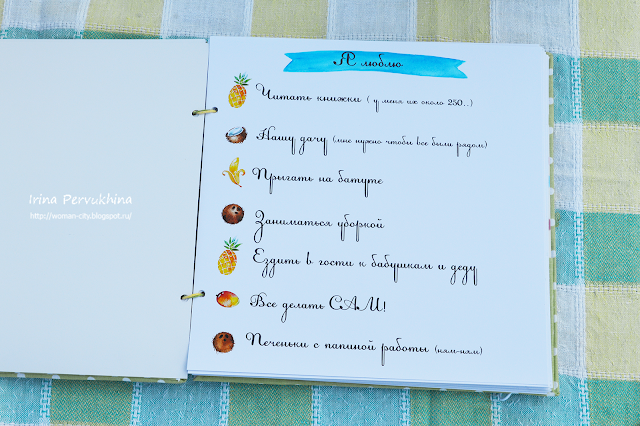 Irina Pervukhina
http://woman-city.blogspot.ru/
Я люблю
Читать книжки ( у меня их около 250..)
Нашу дачу (мне нужно чтобы все были рядом)
Прыгать на батуте
Заниматься уборкой
Ездить в гости к бабушкам и деду
Все делать САМ!
Печеньки с папиной работы (ням-ням)